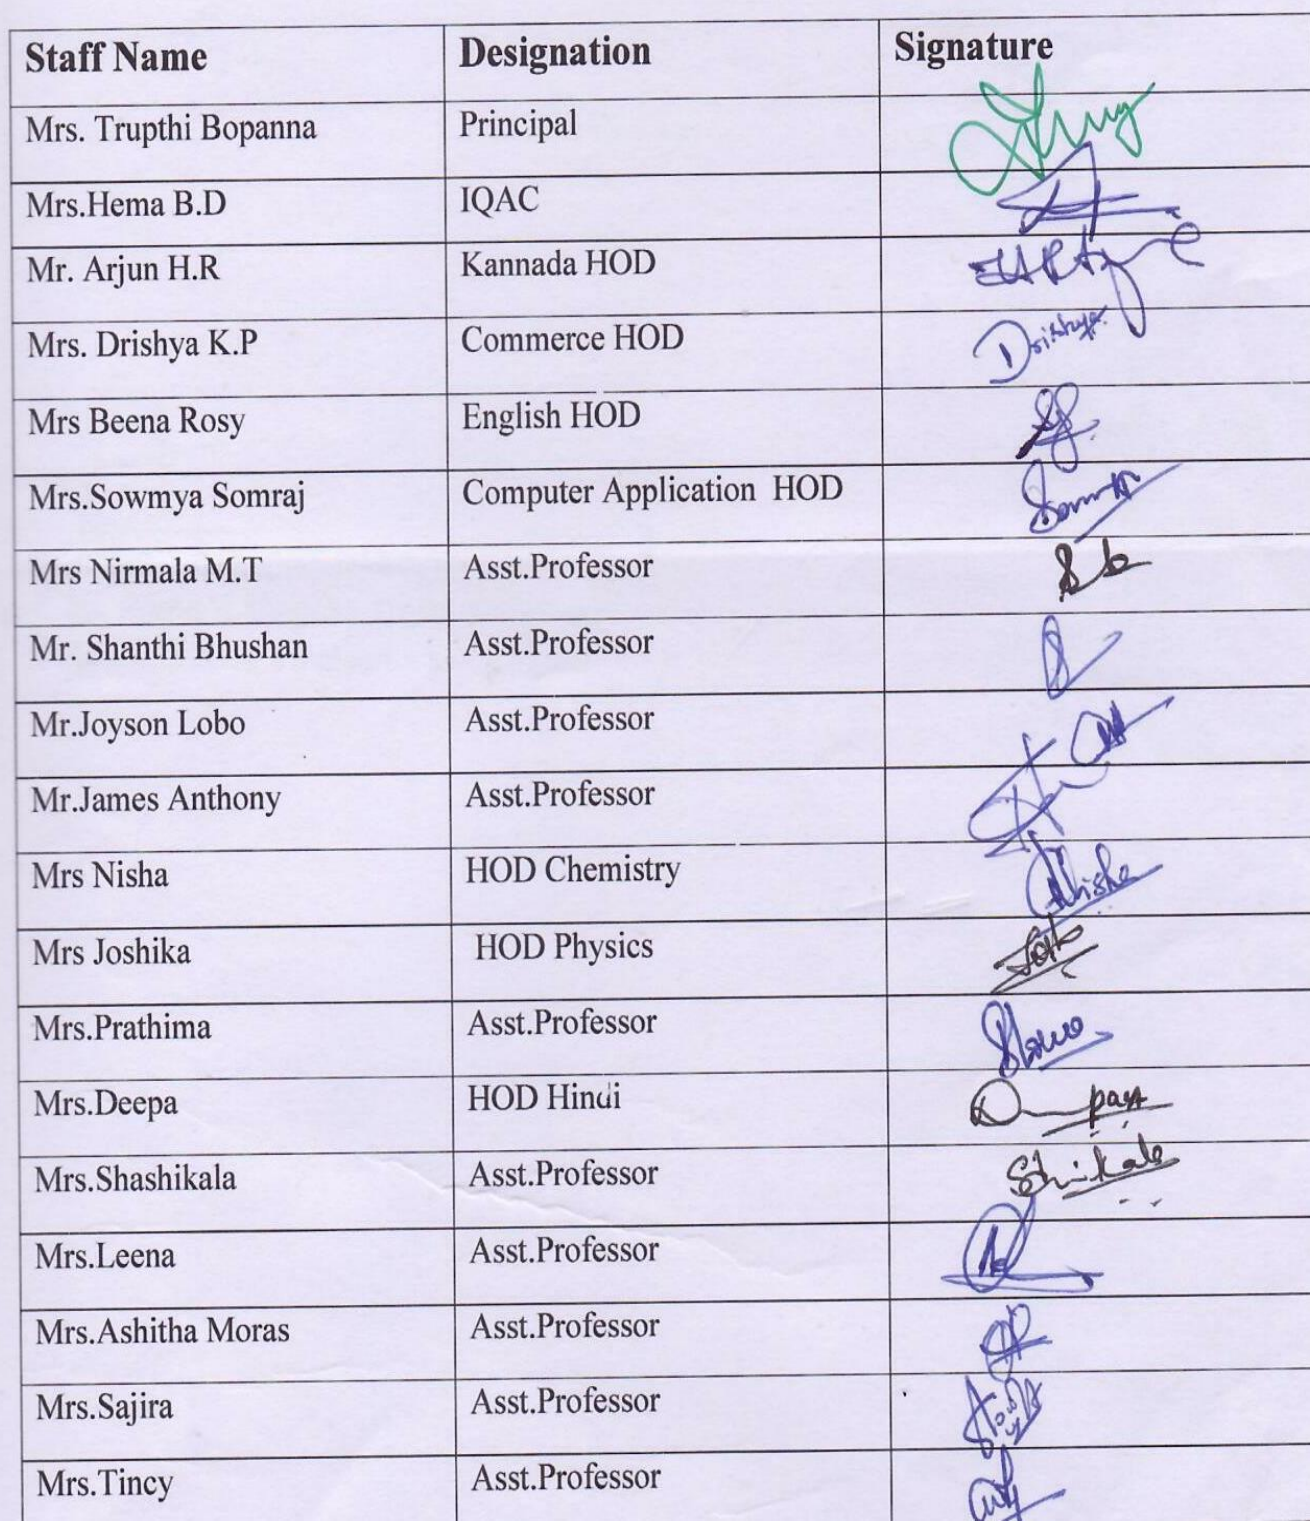 Staff Name Designation Signature
Mrs. Trupthi Bopanna Principal
Mrs.Hema B.D IQAC
Mr. Arjun H.R Kannada HOD
Mrs. Drishya K.P Commerce HOD Drishya
Mrs Beena Rosy English HOD
Mrs.Sowmya Somraj Computer Application HOD
Mrs Nirmala M.T Asst.Professor
Mr. Shanthi Bhushan Asst.Professor
Mr.Joyson Lobo Asst.Professor
Mr.James Anthony Asst.Professor
Mrs Nisha HOD Chemistry Nisha
Mrs Joshika HOD Physics
Mrs.Prathima Asst.Professor
Mrs.Deepa HOD Hindi
Mrs.Shashikala Asst.Professor
Mrs.Leena Asst.Professor
Mrs.Ashitha Moras Asst.Professor
Mrs.Sajira Asst.Professor
Mrs.Tincy Asst.Professor